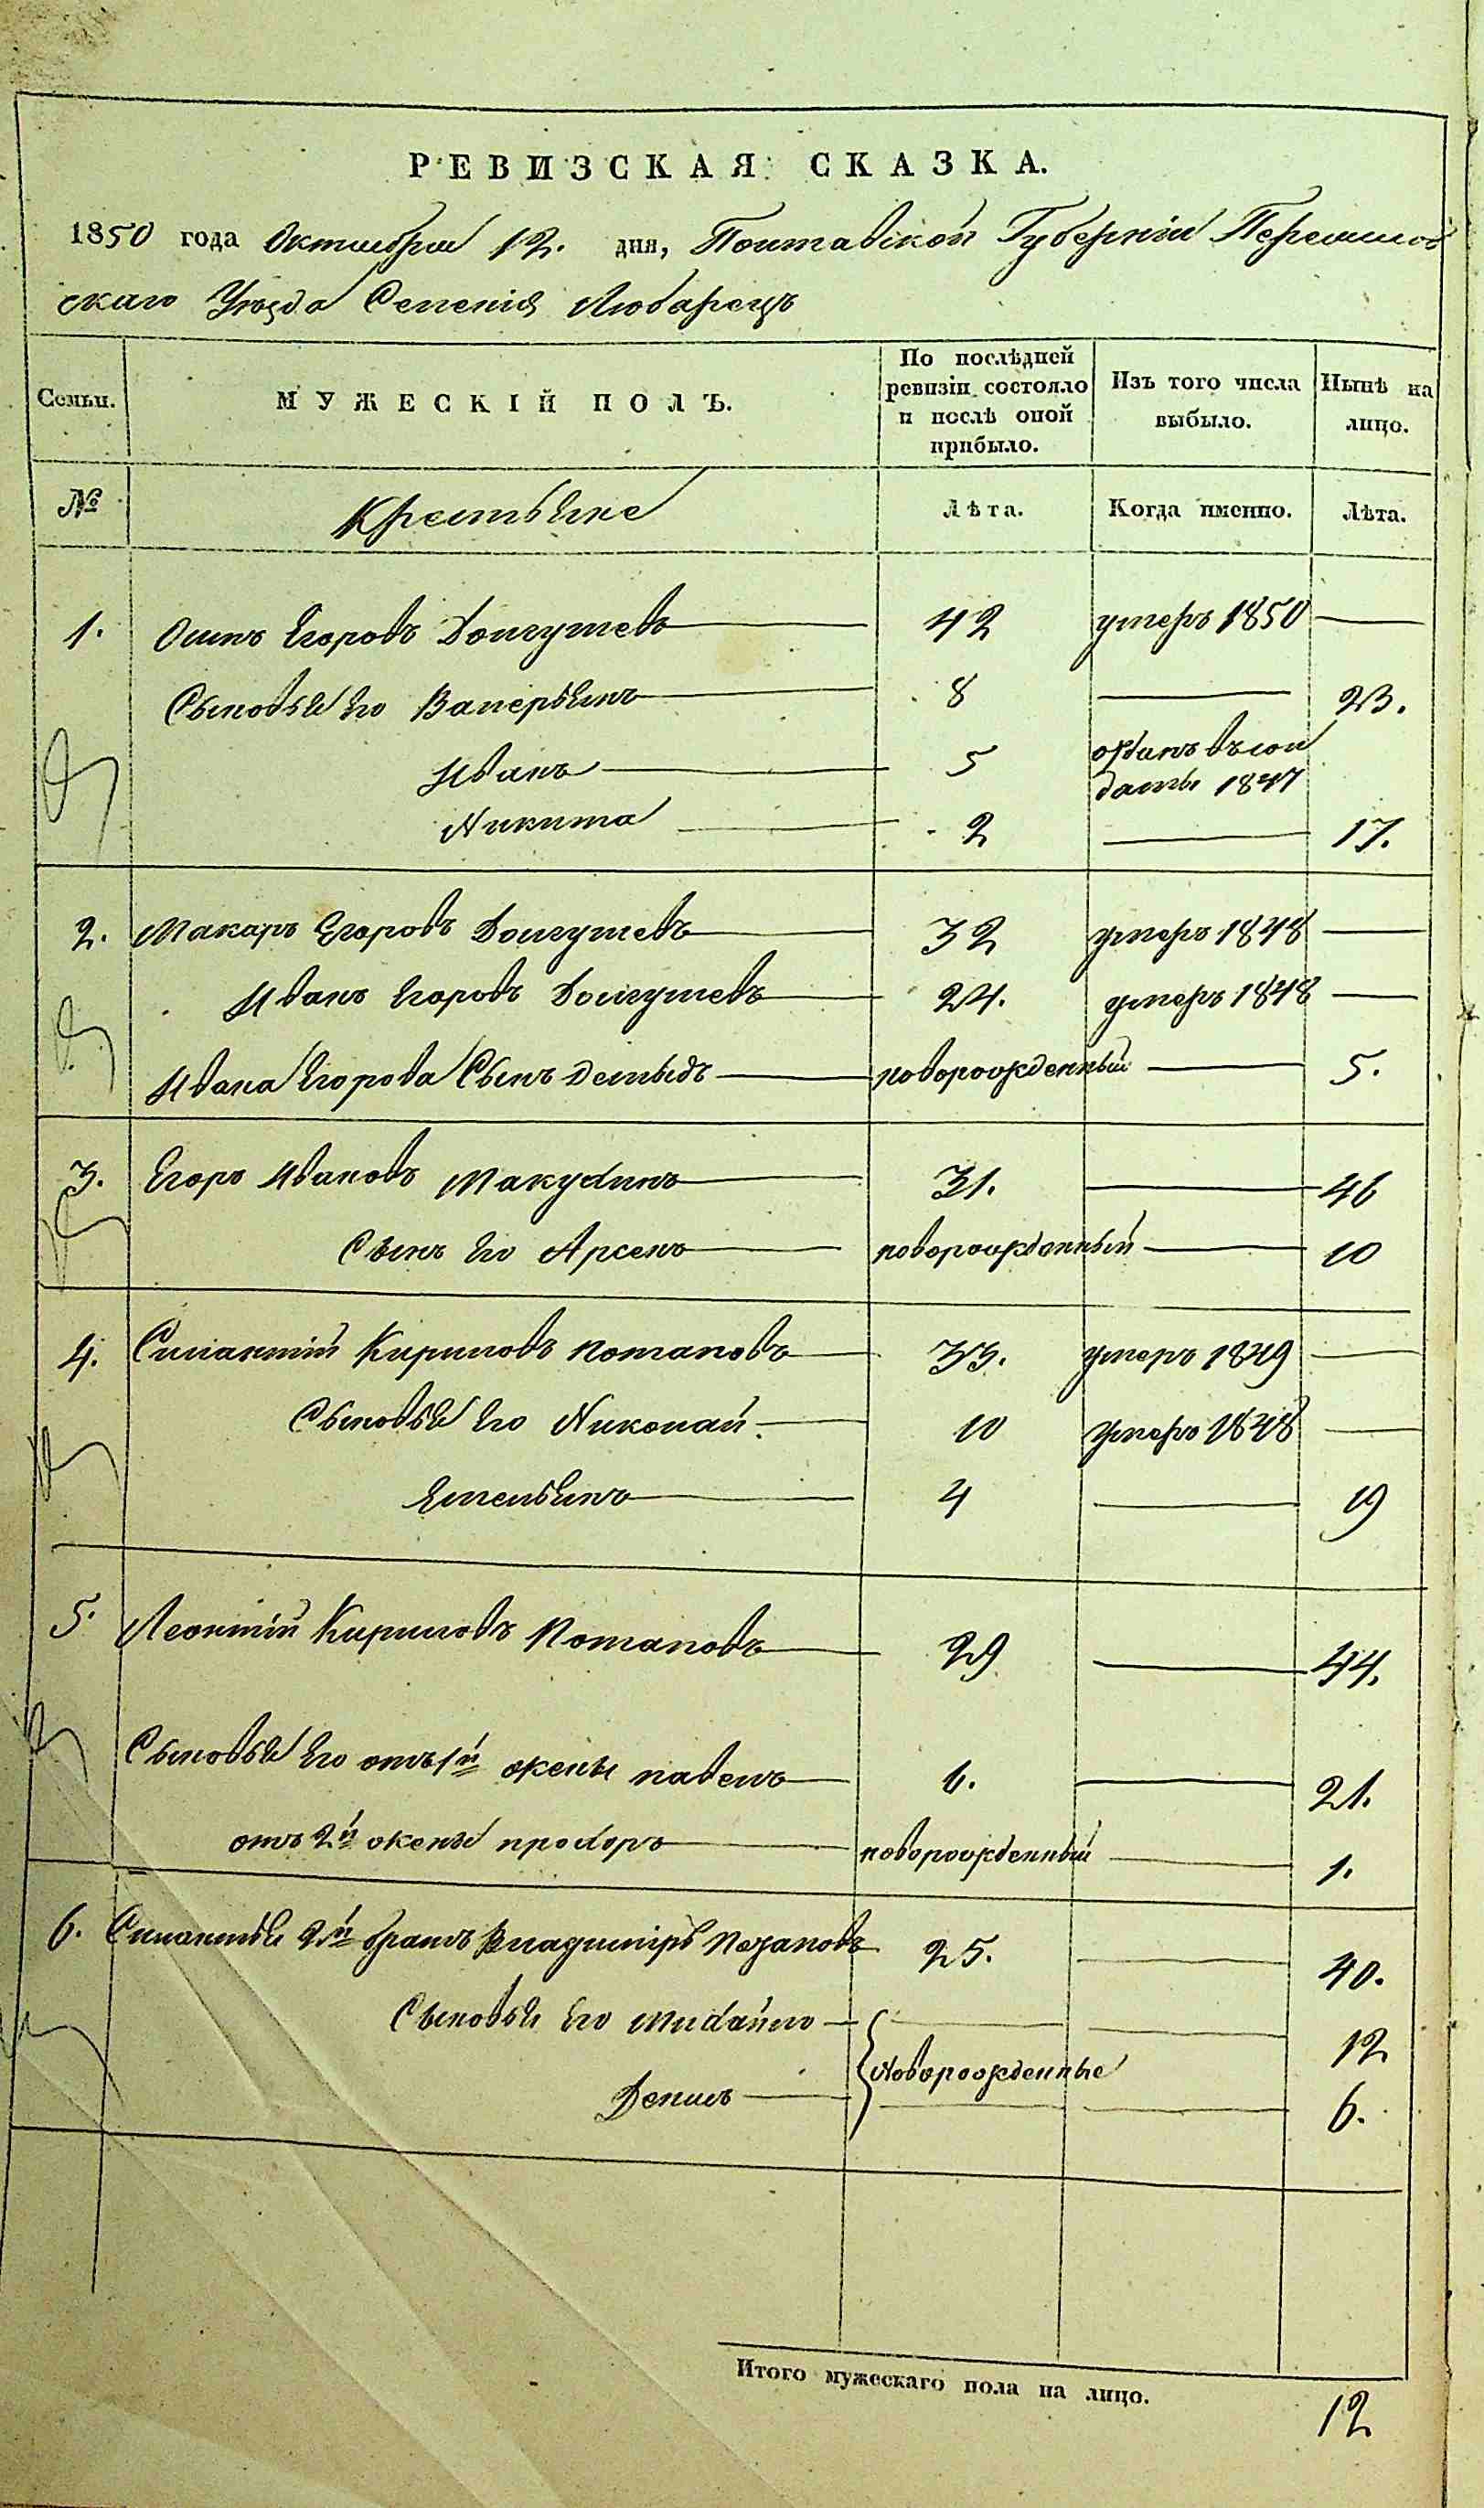 РЕВИЗСКАЯ СКАЗКА.
1850 года Октября 12. дня, Полтавской Губерніи Переяслов
скаго Уезда Селенія Любарецъ
Семьи.
МУЖЕСКІЙ ПОЛЪ.
По послѣдней ревизіи состояло и послѣ оной прибыло.
Изъ того числа выбыло.
Нынѣ на лицо.
№ Крестьяне Лѣта. Когда именно. Лѣта.
1. Осипъ Егоровъ Долгушевъ 42 умеръ 1850
Сыновья Его Валерьянъ 8 23.
Иванъ 5 отданъ въ сол
даты 1847
Никита 2 17.
2. Макаръ Егоровъ Долгушевъ 32 умеръ 1848
Иванъ Егоровъ Долгушевъ 24. умеръ 1848
Ивана Егорова Сынъ Демыдъ новорожденный 5.
3. Егоръ Ивановъ Макухинъ 31. 46
Сынъ Его Арсенъ новорожденный 10
4. Силантій Кириловъ Потаповъ 33. умеръ 1849
Сыновья Его Николай. 10 умеръ 1848
Емельянъ 4 19
5. Леонтій Кириловъ Потаповъ 29 44.
Сыновья Его отъ 1й жены павелъ 6. 21.
отъ 2й жены прохоръ новорожденный 1.
6. Силантья 2й братъ Владиміръ Потаповъ 25. 40.
Сыновья Его Михайло 12
Новорожденные
Денисъ 6.
Итого мужескаго пола на лицо. 12